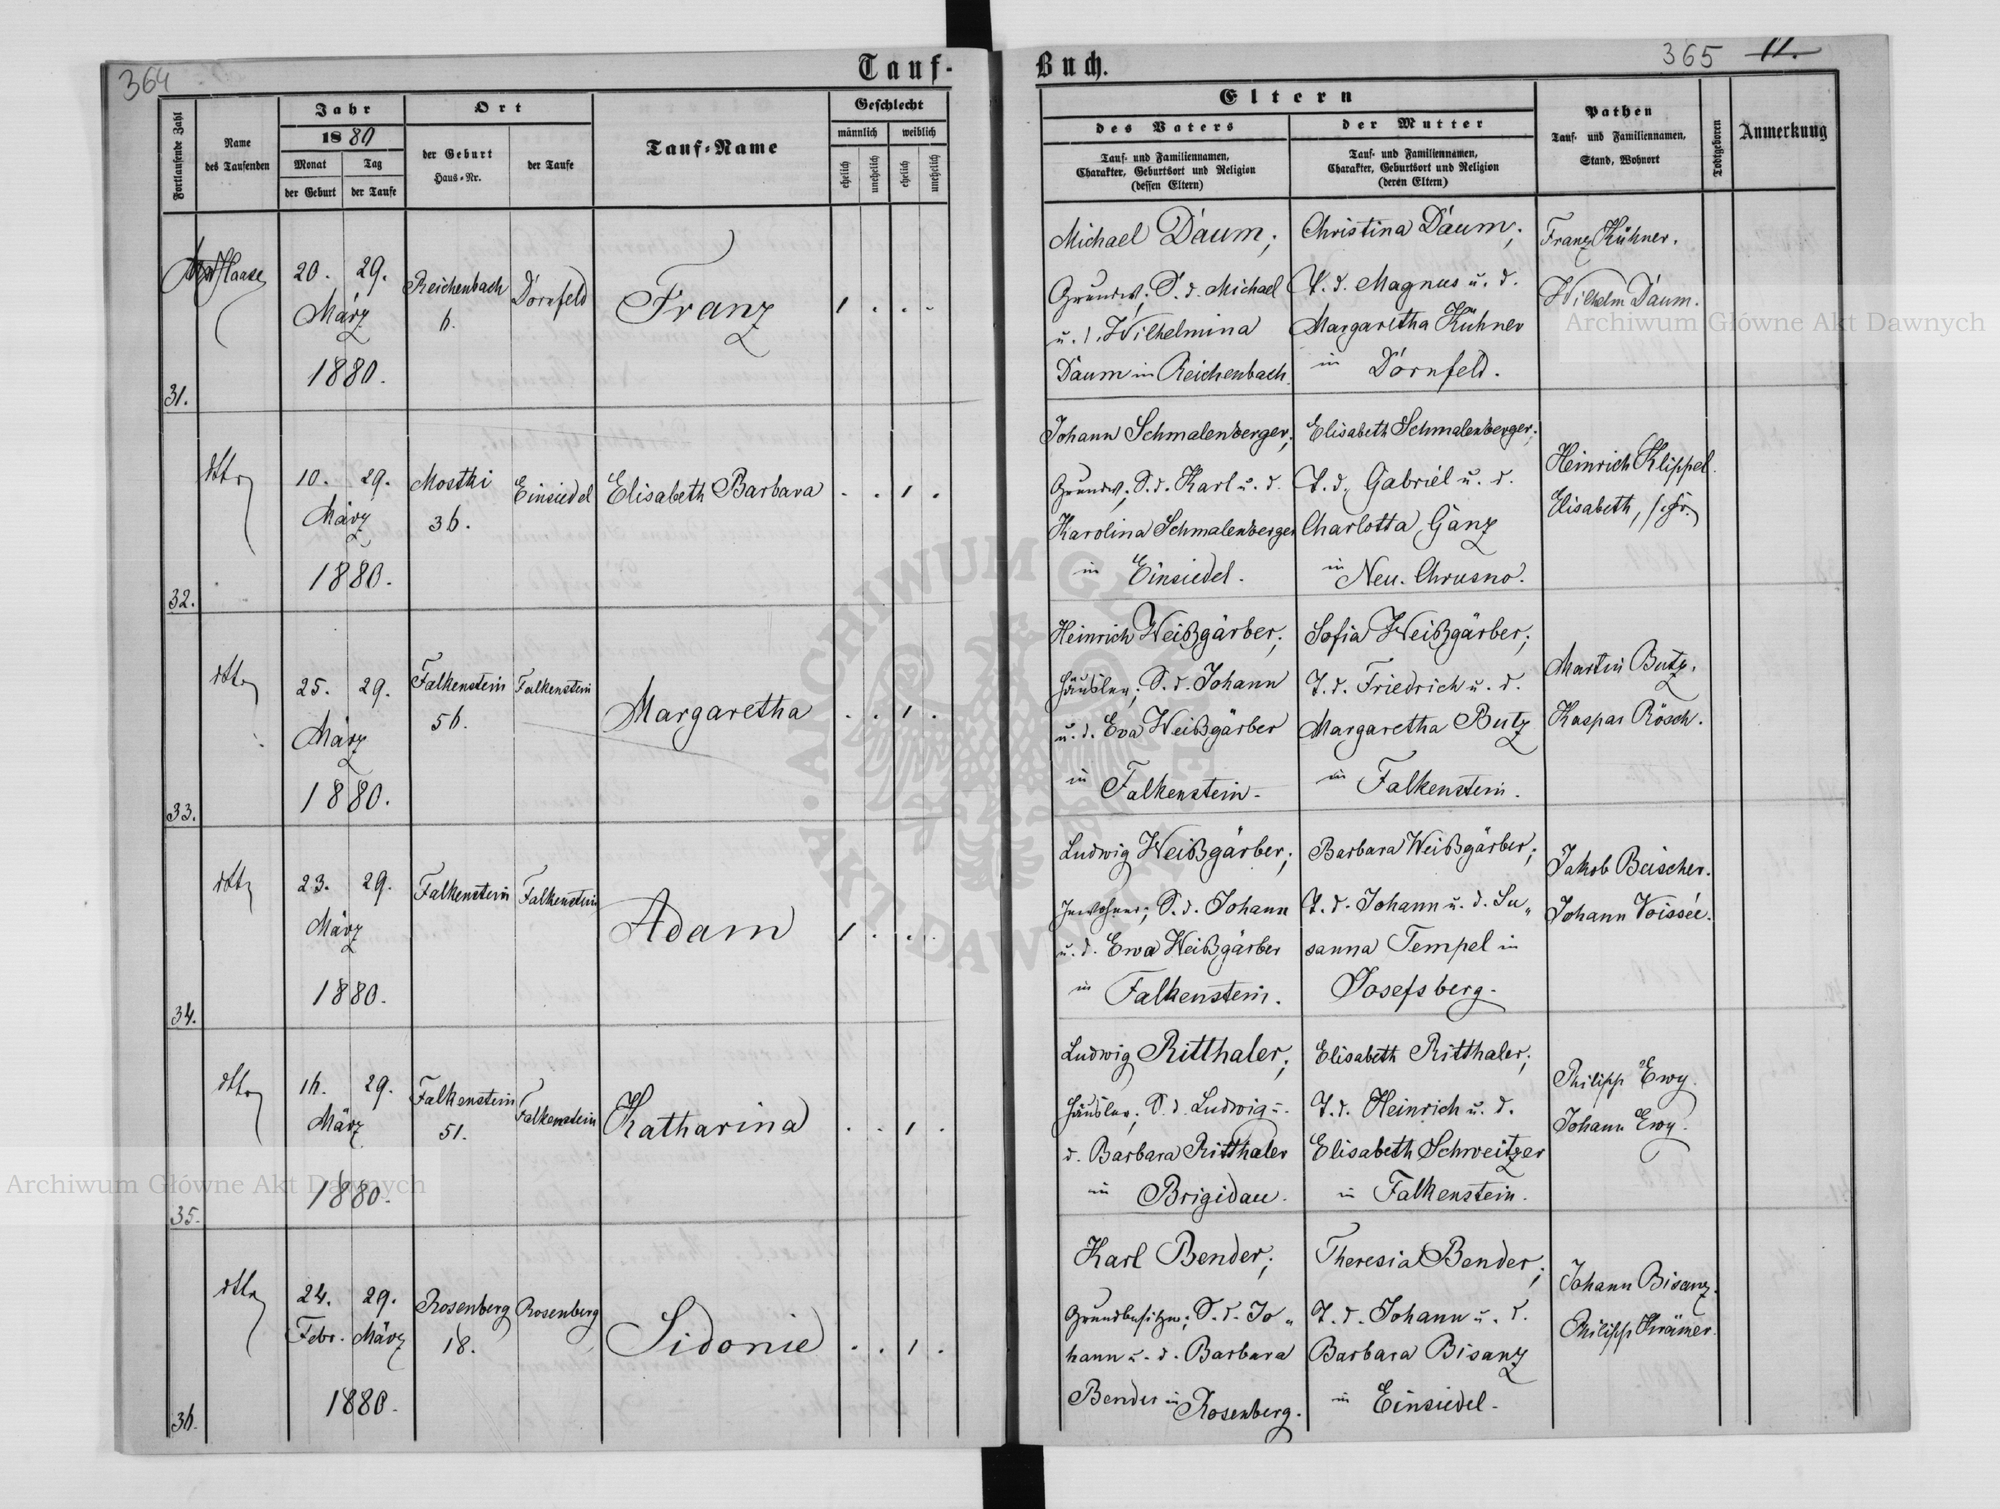 364
Tauf-
Buch.
365 11.
Fortlaufende Zahl
Name
des Taufenden
Jahr
1880
Monat
Tag
der Geburt
der Taufe
Ort
der Geburt
Haus-Nr.
der Taufe
Tauf-Name
Geschlecht
männlich
weiblich
ehelich
unehelich
ehelich
unehelich
Eltern
des Vaters
Tauf- und Familiennamen,
Charakter, Geburtsort und Religion
(dessen Eltern)
der Mutter
Tauf- und Familiennamen,
Charakter, Geburtsort und Religion
(deren Eltern)
Pathen
Tauf- und Familiennamen,
Stand, Wohnort
Todtgeboren
Anmerkung
31.
Haase
20. 29.
März
1880.
Reichenbach
6.
Dornfeld
Franz
1 . . .
Michael Daum;
Grundw; S. d. Michael
u. d. Wilhelmina
Daum in Reichenbach.
Christina Daum;
T. d. Magnus u. d.
Margaretha Kühner
in Dornfeld.
Franz Kühner.
Wilhelm Daum.
32.
dtto
10. 29.
März
1880.
Mostki
36.
Einsiedel
Elisabeth Barbara
. . 1 .
Johann Schmalenberger;
Grundw; S. d. Karl u. d.
Karolina Schmalenberger
in Einsiedel.
Elisabeth Schmalenberger;
T. d. Gabriel u. d.
Charlotta Ganz
in Neu. Chrusno.
Heinrich Klippel.
Elisabeth,
33.
dtto
25. 29.
März
1880.
Falkenstein
56.
Falkenstein
Margaretha
. . 1 .
Heinrich Weißgärber;
Häusler; S. d. Johann
u. d. Eva Weißgärber
in Falkenstein.
Sofia Weißgärber;
T. d. Friedrich u. d.
Margaretha Butz
in Falkenstein.
Martin Butz.
Kaspar Rösch.
34.
dtto
23. 29.
März
1880.
Falkenstein
Falkenstein
Adam
1 . . .
Ludwig Weißgärber;
Inwohner; S. d. Johann
u. d. Ewa Weißgärber
in Falkenstein.
Barbara Weißgärber;
T. d. Johann u. d. Su„
sanna Tempel in
Josefsberg.
Jakob Beischer.
Johann Voissée.
35.
dtto
16. 29.
März
1880.
Falkenstein
51.
Falkenstein
Katharina
. . 1 .
Ludwig Ritthaler;
Häusler; S. d. Ludwig u.
d. Barbara Ritthaler
in Brigidau.
Elisabeth Ritthaler;
T. d. Heinrich u. d.
Elisabeth Schweitzer
in Falkenstein.
Philipp Ewy.
Johann Ewy.
36.
dtto
24. 29.
Febr. März
1880.
Rosenberg
18.
Rosenberg
Sidonie
. . 1 .
Karl Bender;
Grundbesitzer; S. d. Jo„
hann u. d. Barbara
Bender in Rosenberg.
Theresia Bender;
T. d. Johann u. d.
Barbara Bisanz
in Einsiedel.
Johann Bisanz.
Philipp Krämer.
Archiwum Główne Akt Dawnych
Archiwum Główne Akt Dawnych
ARCHIWUM GŁÓWNE
AKT DAWNYCH